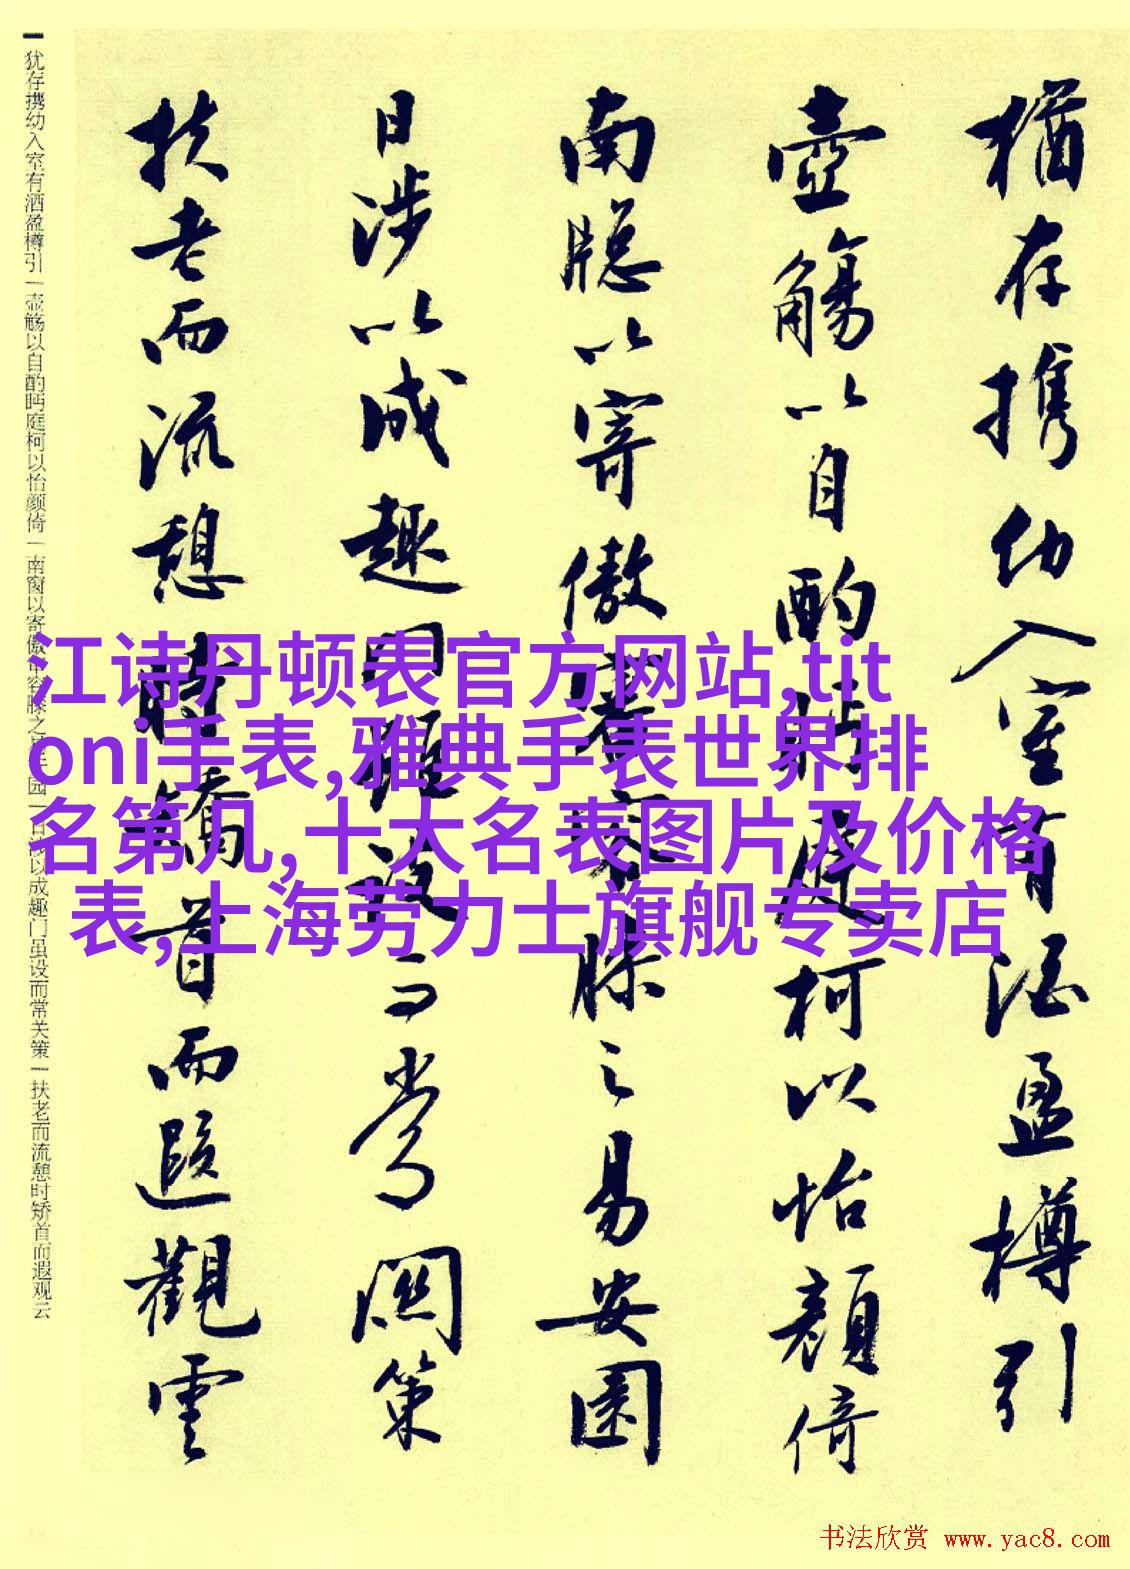 猶存携幼入室有酒盈樽引
壺觴以自酌眄庭柯以怡顏倚
南牕以寄傲審容膝之易安園
日涉以成趣門雖設而常關策
扶老而流憩時矯首而遐觀雲
犹存携幼入室有洒盈樽引｜壶觞以自酌眄庭柯以怡颜倚｜南窗以寄傲审容膝之易安园｜日涉以成趣门虽设而常关策｜扶老而流憩时矫首而遐观云
江诗丹顿表官方网站,tit
oni手表,雅典手表世界排
名第几,十大名表图片及价格
表,上海劳力士旗舰专卖店
书法欣赏 www.yac8.com